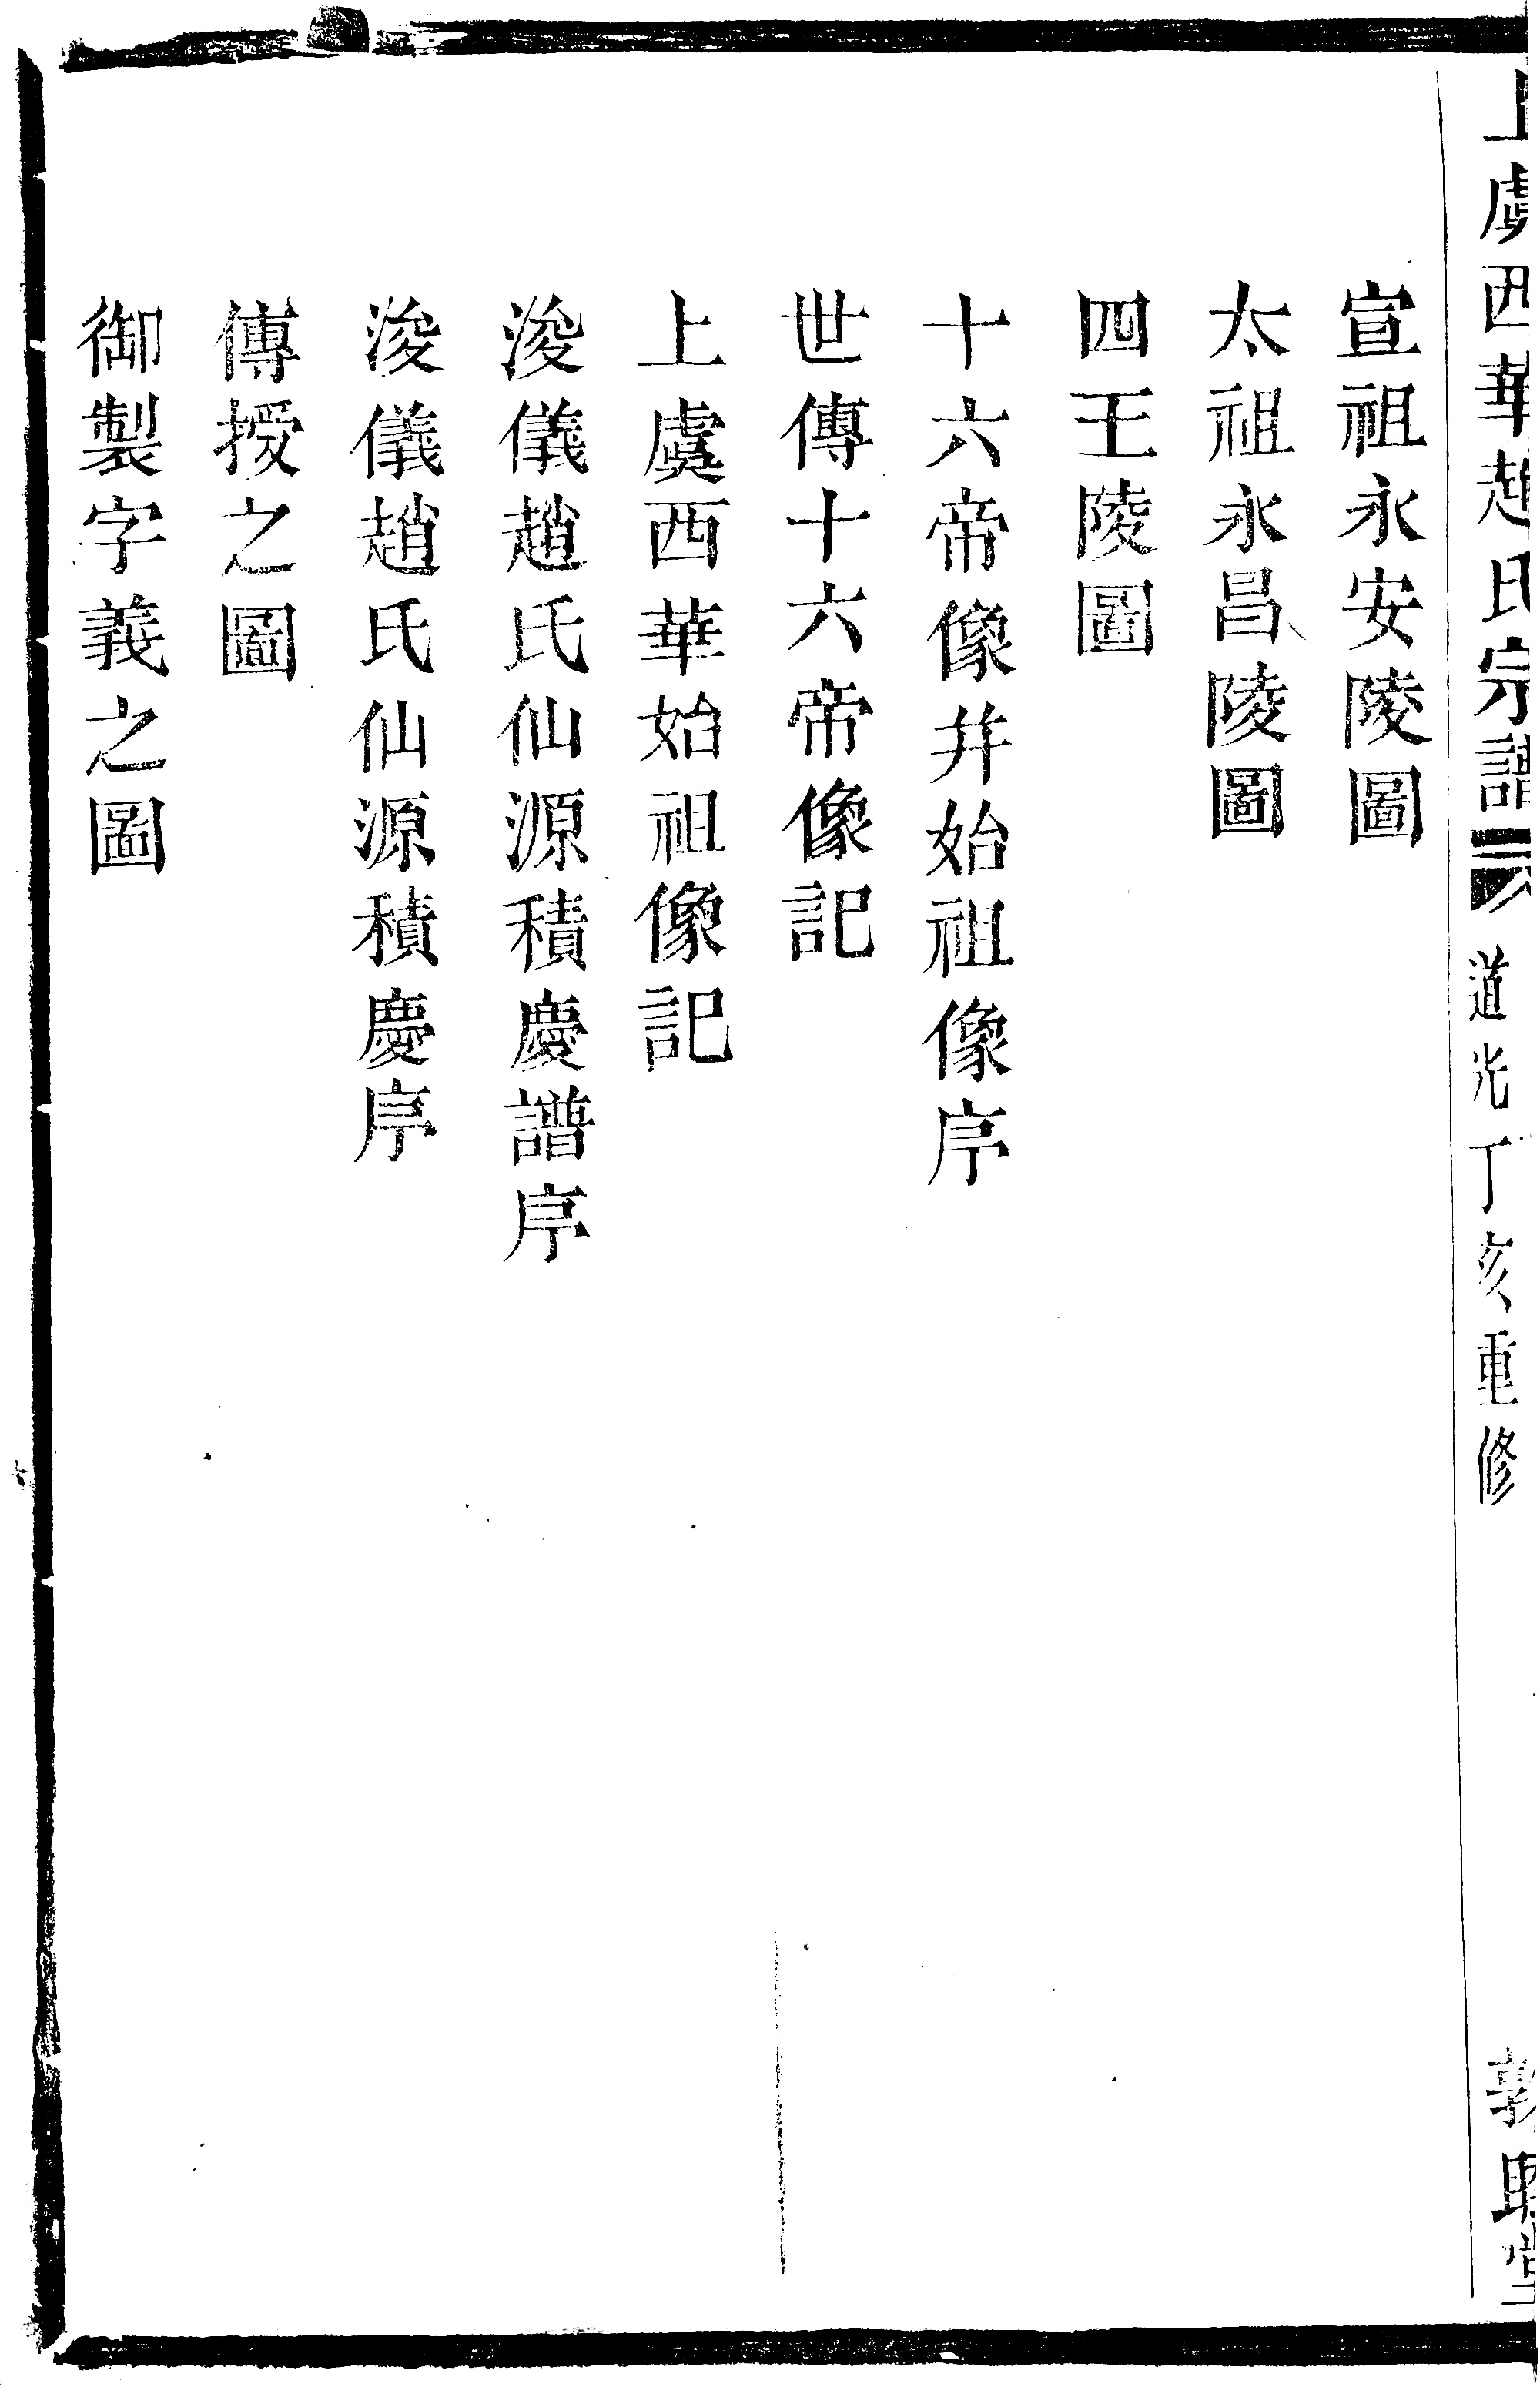 上虞西華趙氏宗譜 道光丁亥重修 敦睦堂
宣祖永安陵圖
太祖永昌陵圖
四王陵圖
十六帝像并始祖像序
世傳十六帝像記
上虞西華始祖像記
浚儀趙氏仙源積慶譜序
浚儀趙氏仙源積慶序
傳授之圖
御製字義之圖